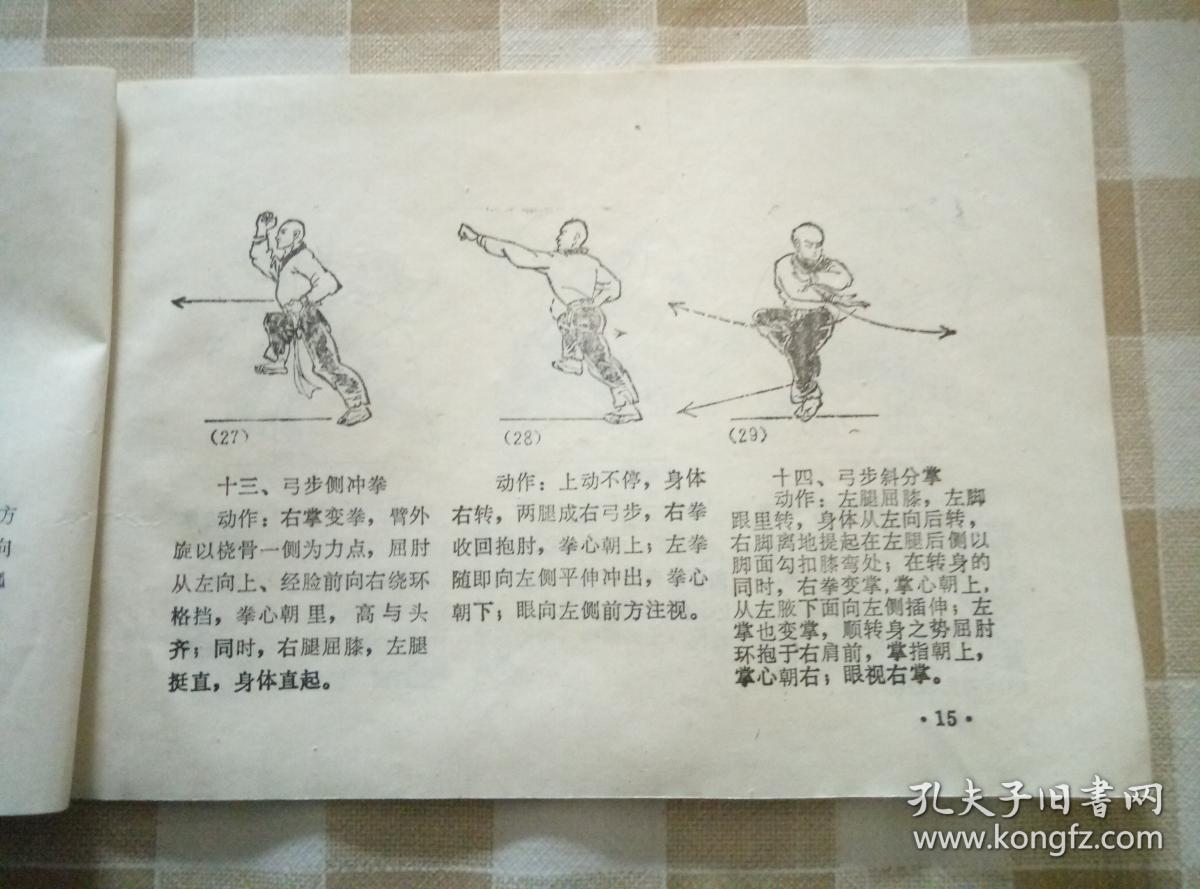 方
向
(27)
十三、弓步侧冲拳
动作：右掌变拳，臂外
旋以桡骨一侧为力点，屈肘
从左向上、经脸前向右绕环
格挡，拳心朝里，高与头
齐；同时，右腿屈膝，左腿
挺直，身体直起。
(28)
动作：上动不停，身体
右转，两腿成右弓步，右拳
收回抱肘，拳心朝上；左拳
随即向左侧平伸冲出，拳心
朝下；眼向左侧前方注视。
(29)
十四、弓步斜分掌
动作：左腿屈膝，左脚
跟里转，身体从左向后转，
右脚离地提起在左腿后侧以
脚面勾扣膝弯处；在转身的
同时，右拳变掌，掌心朝上，
从左腋下面向左侧插伸；左
掌也变掌，顺转身之势屈肘
环抱于右肩前，掌指朝上，
掌心朝右；眼视右掌。
·15·
孔夫子旧書网
www.kongfz.com